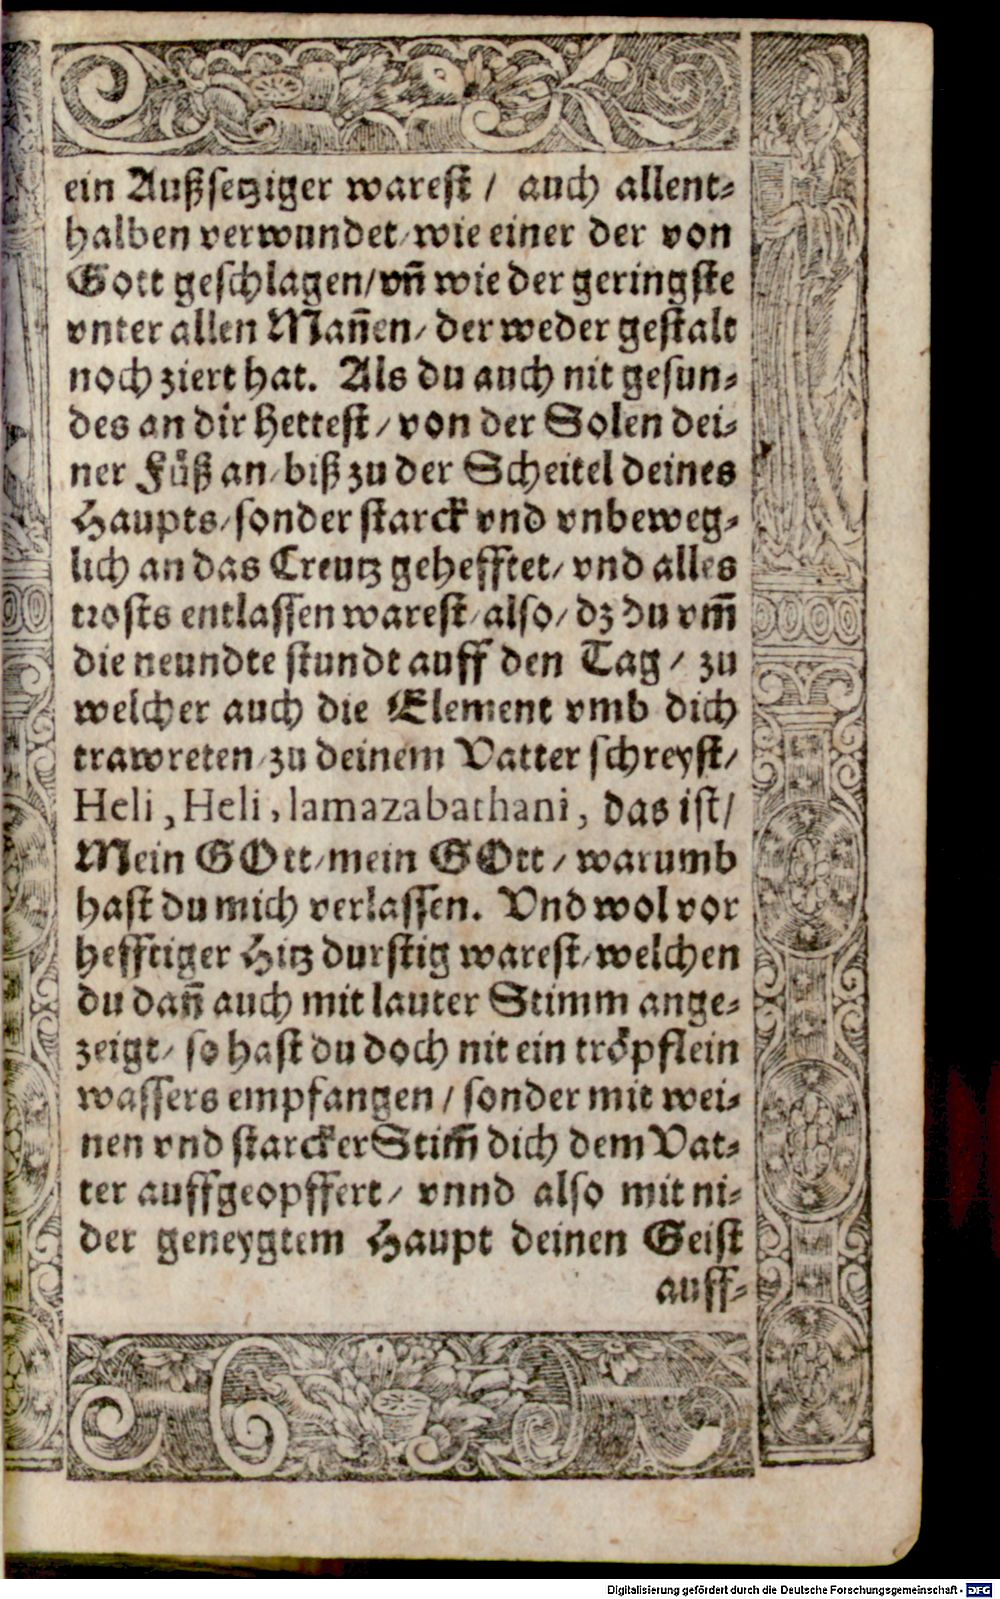 ein Außsetziger warest / auch allent⸗
halben verwundet / wie einer der von
Gott geschlagen / vñ wie der geringste
vnter allen Mañen / der weder gestalt
noch ziert hat. Als du auch nit gesun⸗
des an dir hettest / von der Solen dei⸗
ner Füß an / biß zu der Scheitel deines
Haupts / sonder starck vnd vnbeweg⸗
lich an das Creutz gehefftet / vnd alles
trosts entlassen warest / also / dz du vm̃
die neundte stundt auff den Tag / zu
welcher auch die Element vmb dich
trawreten / zu deinem Vatter schreyst /
Heli, Heli, lamazabathani, das ist /
Mein GOtt / mein GOtt / warumb
hast du mich verlassen. Vnd wol vor
hefftiger Hitz durstig warest / welchen
du dañ auch mit lauter Stimm ange⸗
zeigt / so hast du doch nit ein tröpflein
wassers empfangen / sonder mit wei⸗
nen vnd starcker Stim̃ dich dem Vat⸗
ter auffgeopffert / vnnd also mit ni⸗
der geneygtem Haupt deinen Geist
auff⸗
Digitalisierung gefördert durch die Deutsche Forschungsgemeinschaft - DFG